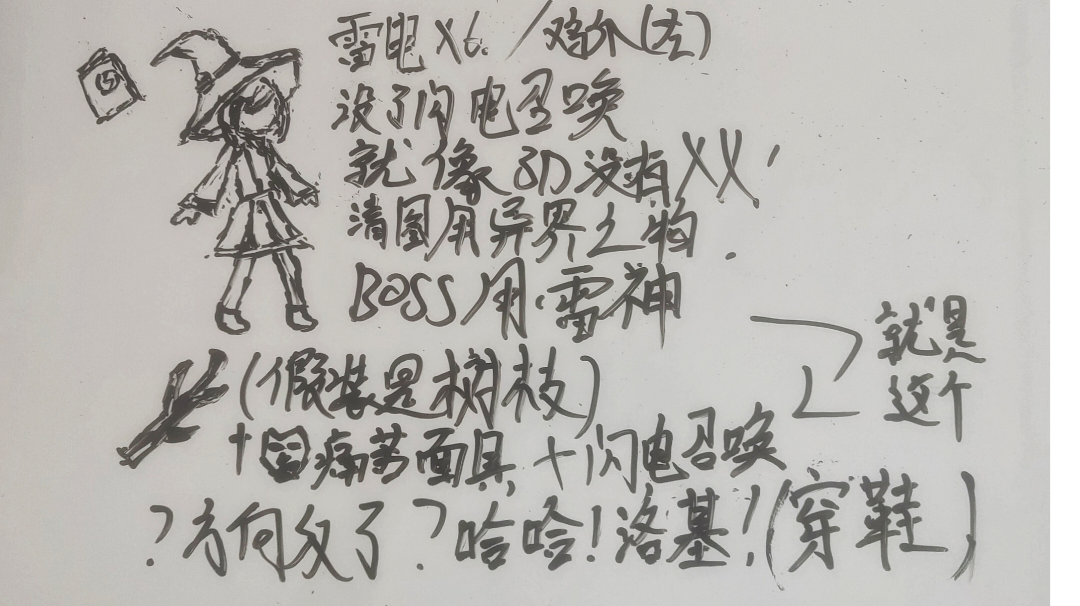 雷电X6. / 鸡尔(左)
没了闪电召唤
就像刀没有XX,
清图用异界之物.
BOSS用.雷神
就是
这个
(假装是树枝)
+ 痛苦面具 + 闪电召唤
?方向反了?哈哈!洛基!(穿鞋)